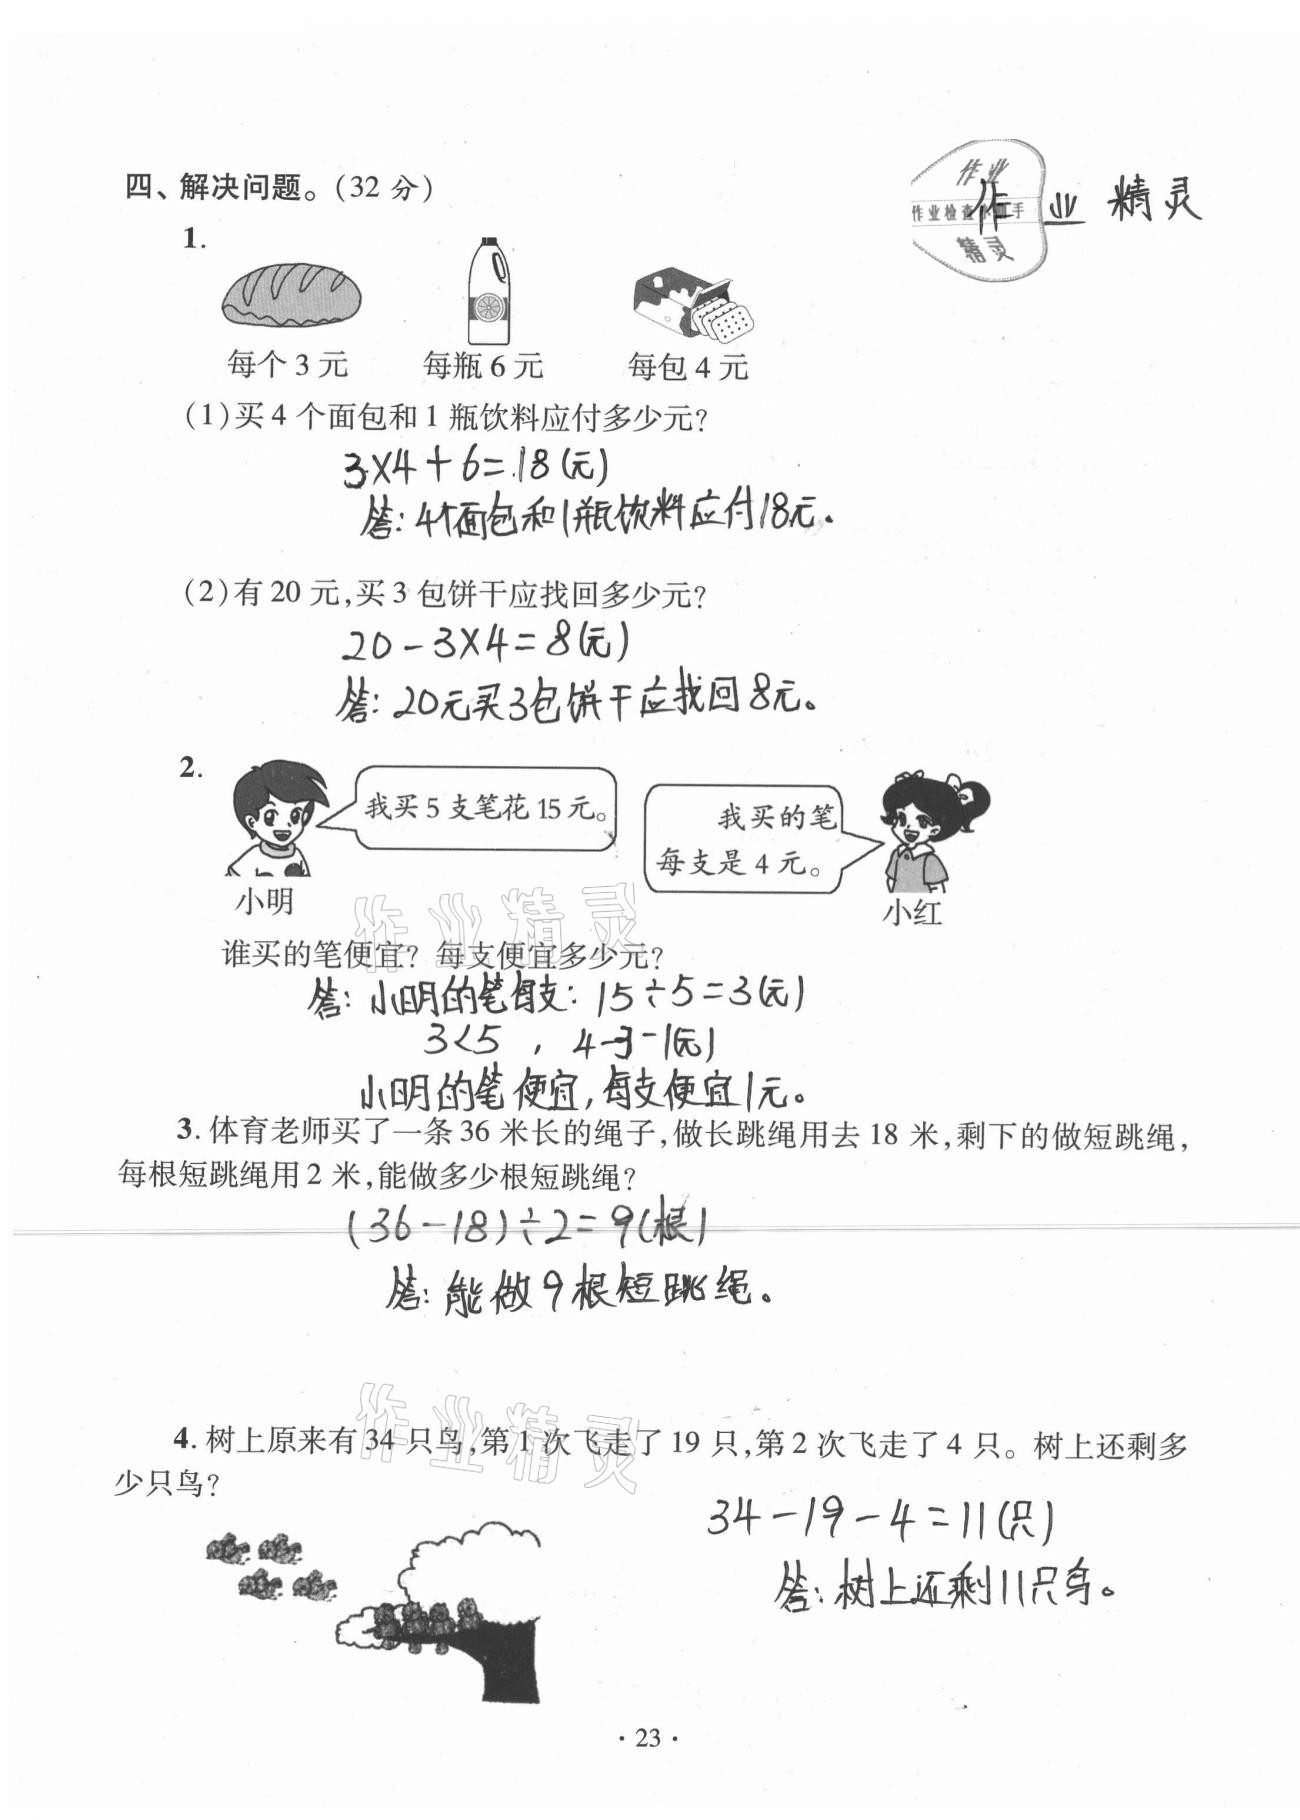 四、解决问题。(32 分)
作业
作业检查小助手
精灵
作 业 精灵
1.
每个 3 元 每瓶 6 元 每包 4 元
(1)买 4 个面包和 1 瓶饮料应付多少元?
3×4+6=18(元)
答:4个面包和1瓶饮料应付18元。
(2)有 20 元,买 3 包饼干应找回多少元?
20-3×4=8(元)
答:20元买3包饼干应找回8元。
2.
我买 5 支笔花 15 元。
我买的笔
每支是 4 元。
小明
小红
作业精灵
谁买的笔便宜? 每支便宜多少元?
答:小明的笔每支:15÷5=3(元)
3<5 , 4-3=1(元)
小明的笔便宜,每支便宜1元。
3. 体育老师买了一条 36 米长的绳子,做长跳绳用去 18 米,剩下的做短跳绳,
每根短跳绳用 2 米,能做多少根短跳绳?
(36-18)÷2=9(根)
答:能做9根短跳绳。
作业精灵
4. 树上原来有 34 只鸟,第 1 次飞走了 19 只,第 2 次飞走了 4 只。树上还剩多
少只鸟?
34-19-4=11(只)
答:树上还剩11只鸟。
· 23 ·